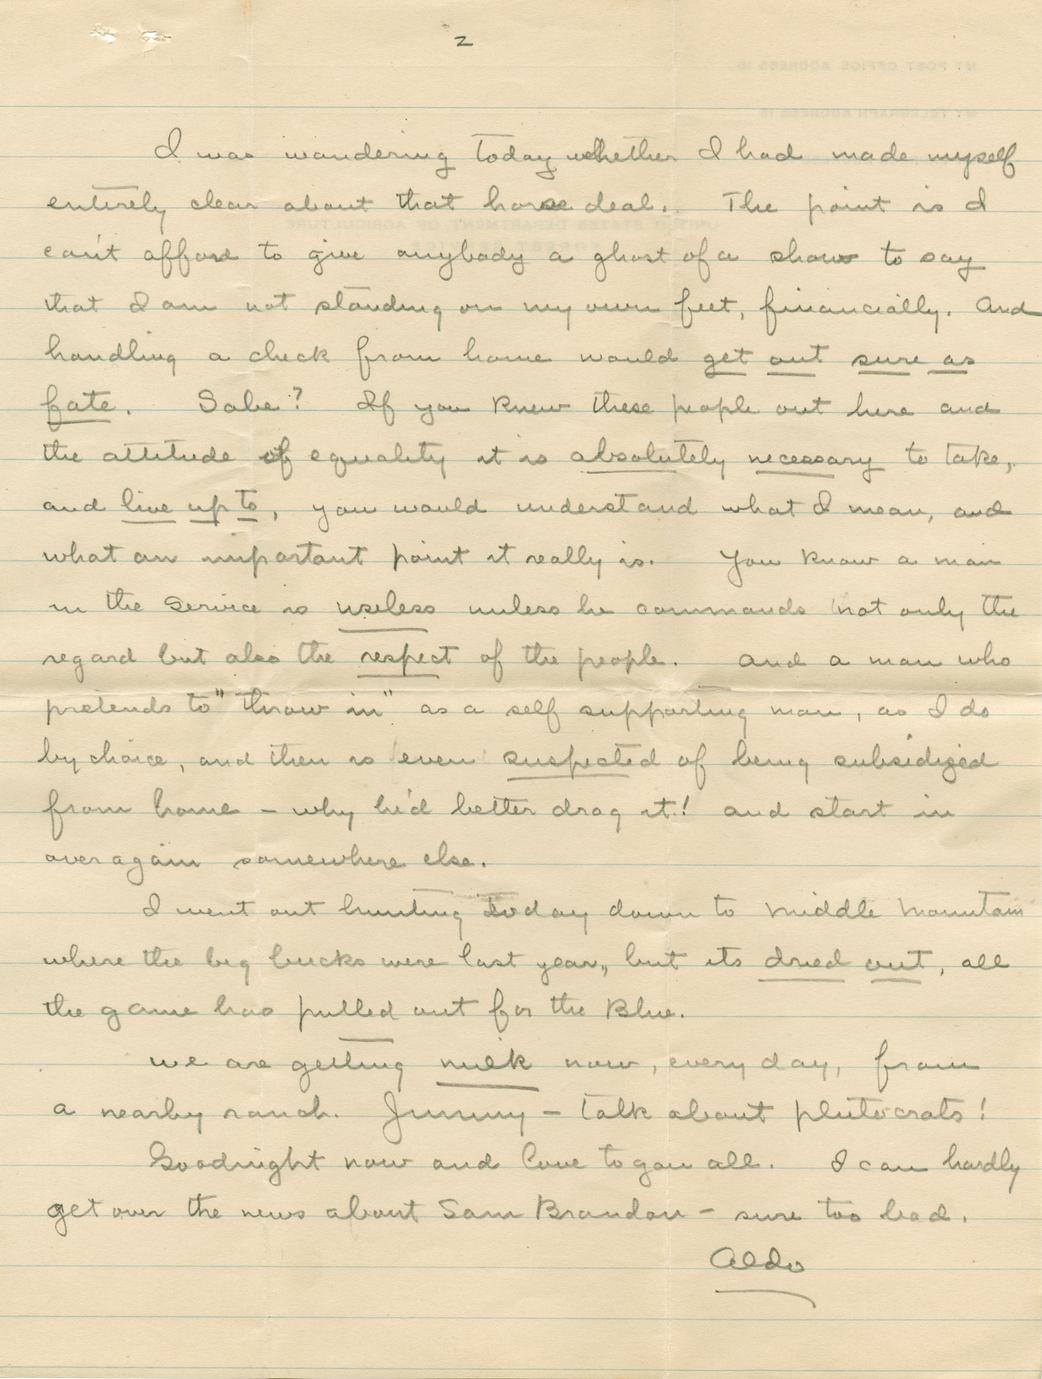 2
I was wondering today whether I had made myself
entirely clear about that horse deal. The point is I
can't afford to give anybody a ghost of a show to say
that I am not standing on my own feet, financially. And
handling a check from home would get out sure as
fate. Sabe? If you knew these people out here and
the attitude of equality it is absolutely necessary to take,
and live up to, you would understand what I mean, and
what an important point it really is. You know a man
in the Service is useless unless he commands not only the
regard but also the respect of the people. And a man who
pretends to "throw in" as a self supporting man, as I do
by choice, and then is even suspected of being subsidized
from home - why he'd better drag it! and start in
over again somewhere else.
I went out hunting today down to Middle Mountain
where the big bucks were last year, but its dried out, all
the game has pulled out for the Blue.
We are getting milk now, every day, from
a nearby ranch. Jimmy - talk about plutocrats!
Goodnight now and love to you all. I can hardly
get over the news about Sam Brandon - sure too bad.
Aldo